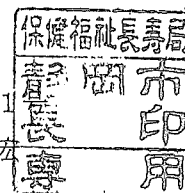 保健福祉長寿局
静岡市
長印
専用